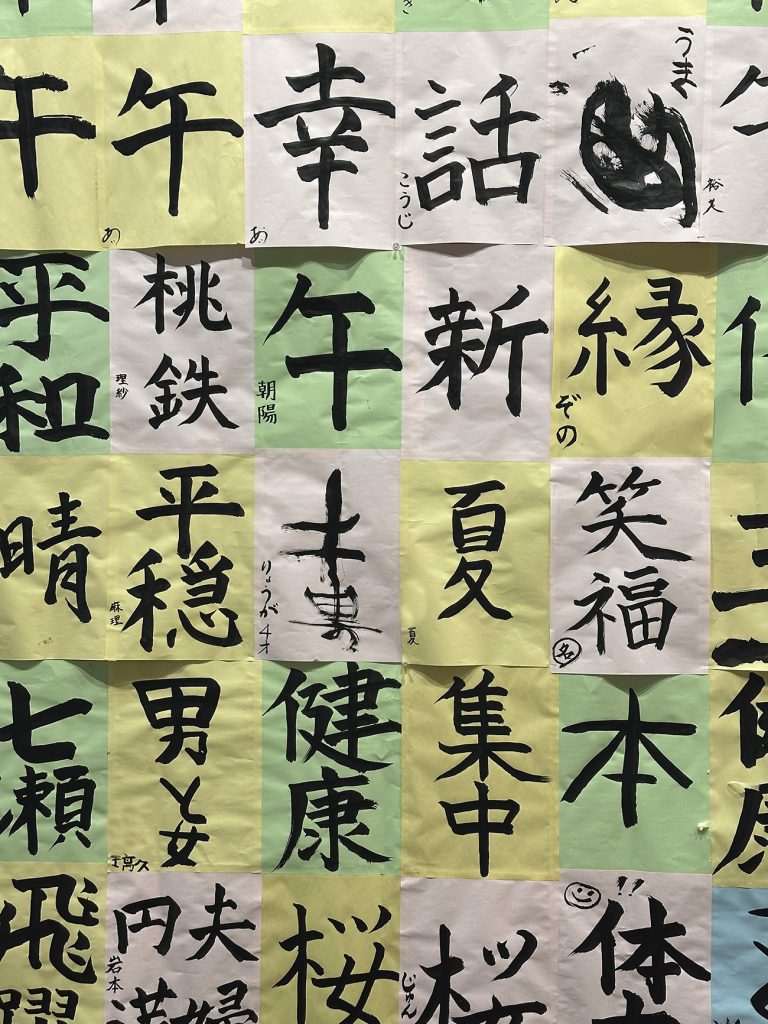 午
午
あ
幸
あ
話
こうじ
うま
裕美
平和
桃鉄
理紗
午
朝陽
新
縁
ぞの
晴
平穏
麻理
りょうが
4才
夏
夏
笑福
名
七瀬
男と女
健康
集中
本
健康
飛躍
夫婦
円満
岩本
桜
じゅん
体
!!